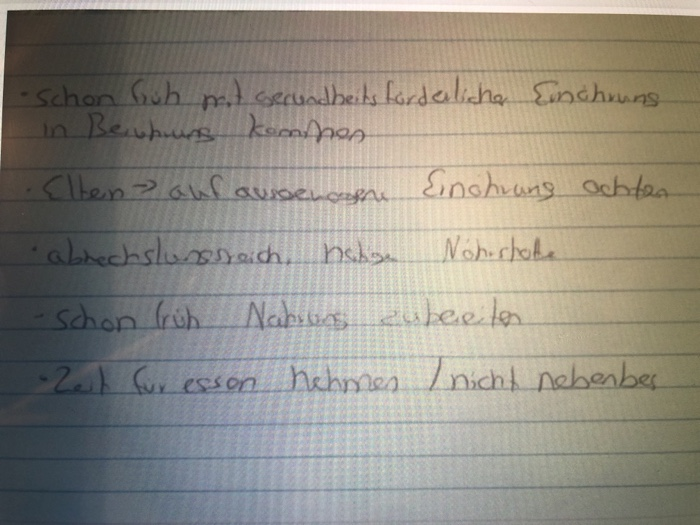 · schon früh mit gesundheitsförderlicher Ernährung
in Berührung kommen
· Eltern → auf ausgewogene Ernährung achten
· abwechslungsreich, Nährstoffe
- schon früh Nahrung zubereiten
· Zeit für essen nehmen / nicht nebenbei